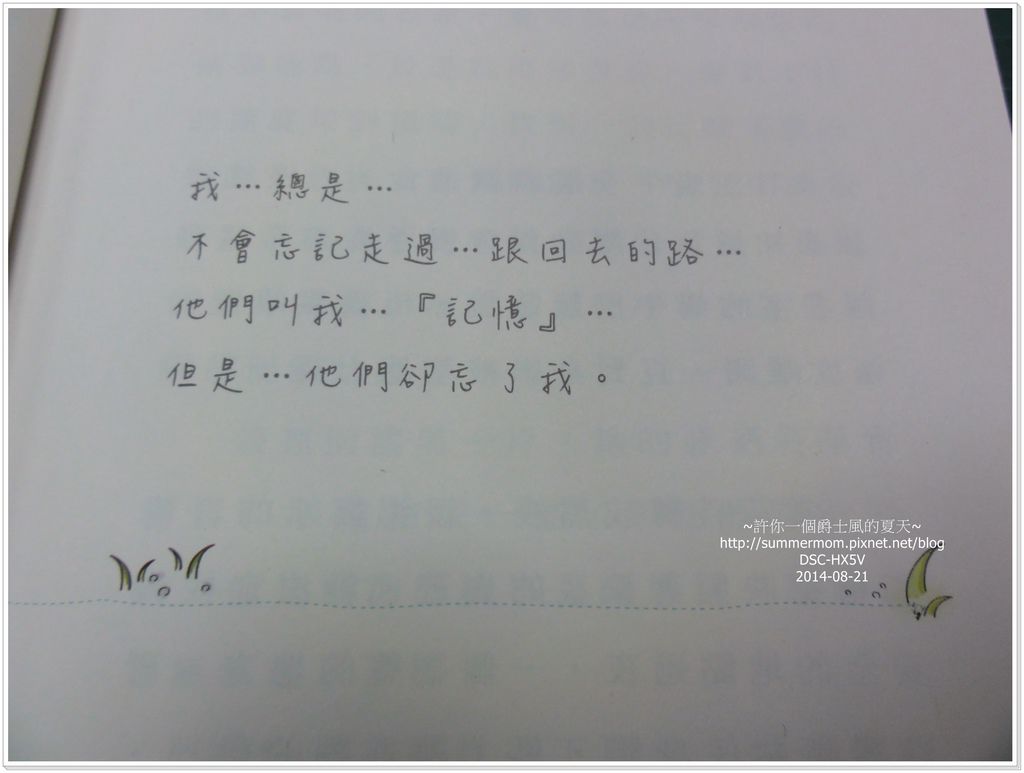 我…總是…
不會忘記走過…跟回去的路…
他們叫我…『記憶』…
但是…他們卻忘了我。
~許你一個爵士風的夏天~
http://summermom.pixnet.net/blog
DSC-HX5V
2014-08-21